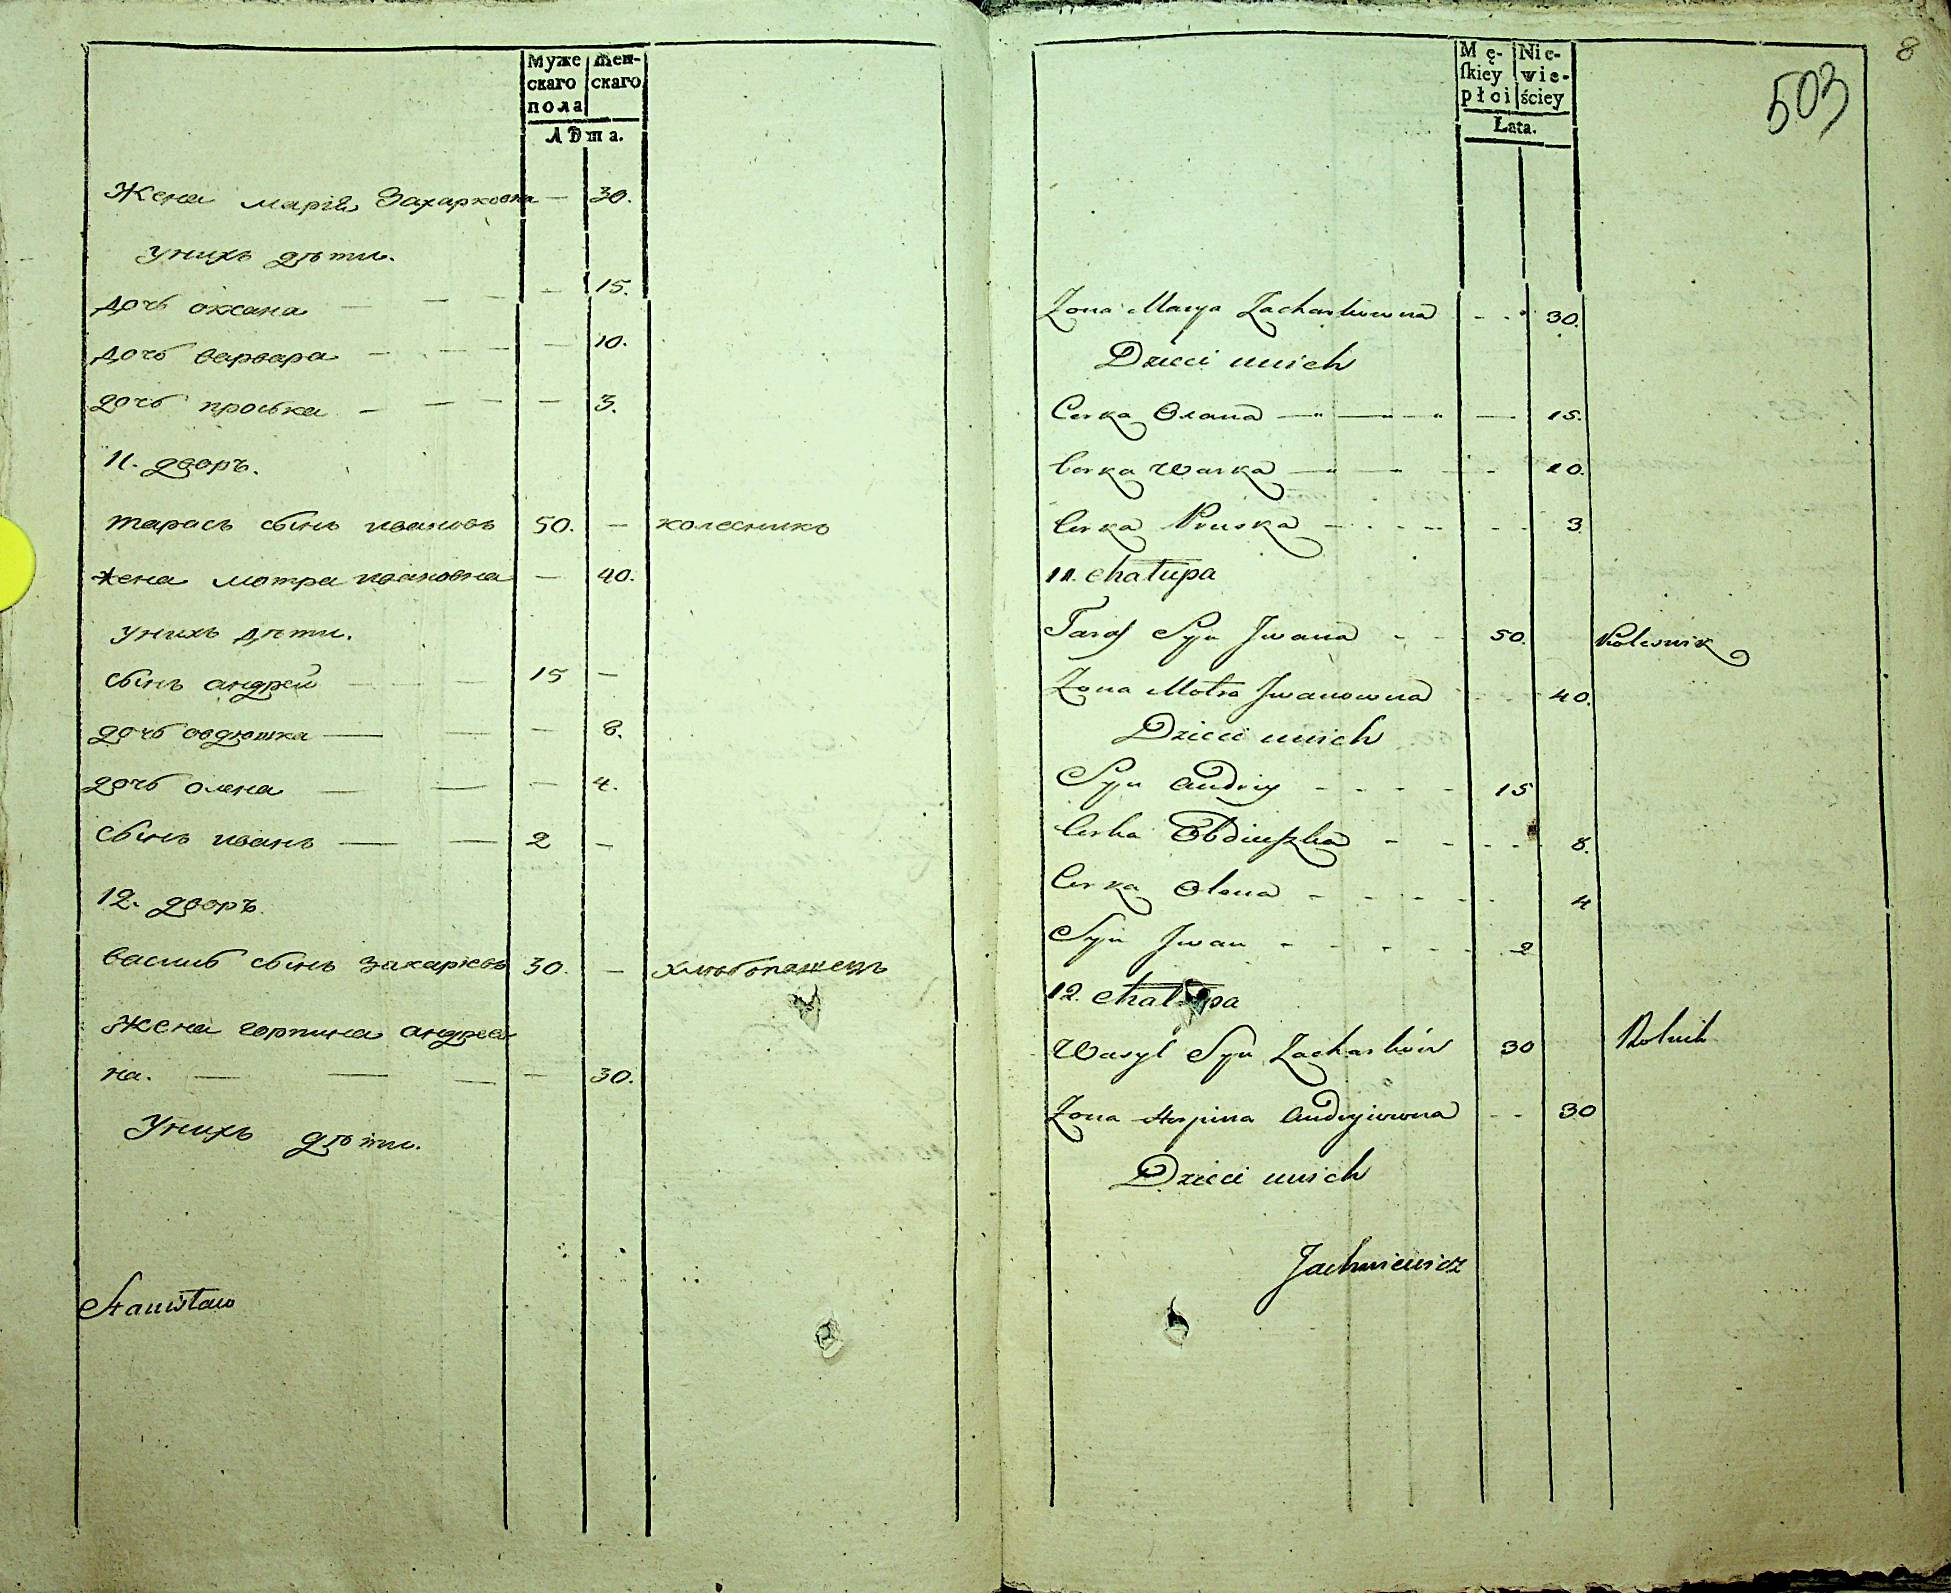 Муже
скаго
пола
Жен-
скаго
Лѣта.
Жена марія Захарковна — 30.
унихъ дѣти.
дочь оксана — — — — 15.
дочь варвара — — — — 10.
дочь проська — — — — 3.
11. дворъ.
тарасъ сынъ ивановъ 50. — колесникъ
жена мотра ивановна — 40.
унихъ дѣти.
сынъ андрей — — — 15 —
дочь овдюшка — — — 8.
дочь олена — — — 4.
сынъ иванъ — — 2 —
12. дворъ.
василь сынъ захаріевъ 30. — хлѣбопашецъ
Жена горпина андрѣев
на. — — — — 30.
Унихъ дѣти.
Stanisław
8
503
Mę-
ſkiey
płci
Nie-
wie-
ściey
Łata.
Zona Marya Zacharkowna - - 30.
Dzieci unich
Corka Oxana — — — 15.
Corka Warka — — - - 10.
Corka Pruska - - - - - 3
11. chałupa
Taras Syn Iwana - - 50. Kolesnik
Zona Motra Iwanowna - - 40.
Dzieci unich
Syn Andriy - - - - 15
Corka Obdiuszka - - - - 8.
Corka Olena - - - - - 4
Syn Iwan - - - - - 2
12. chałupa
Wasyl Syn Zacharków 30 Rolnik
Zona Horpina Andryiowna - - 30
Dzieci unich
Jachniewicz